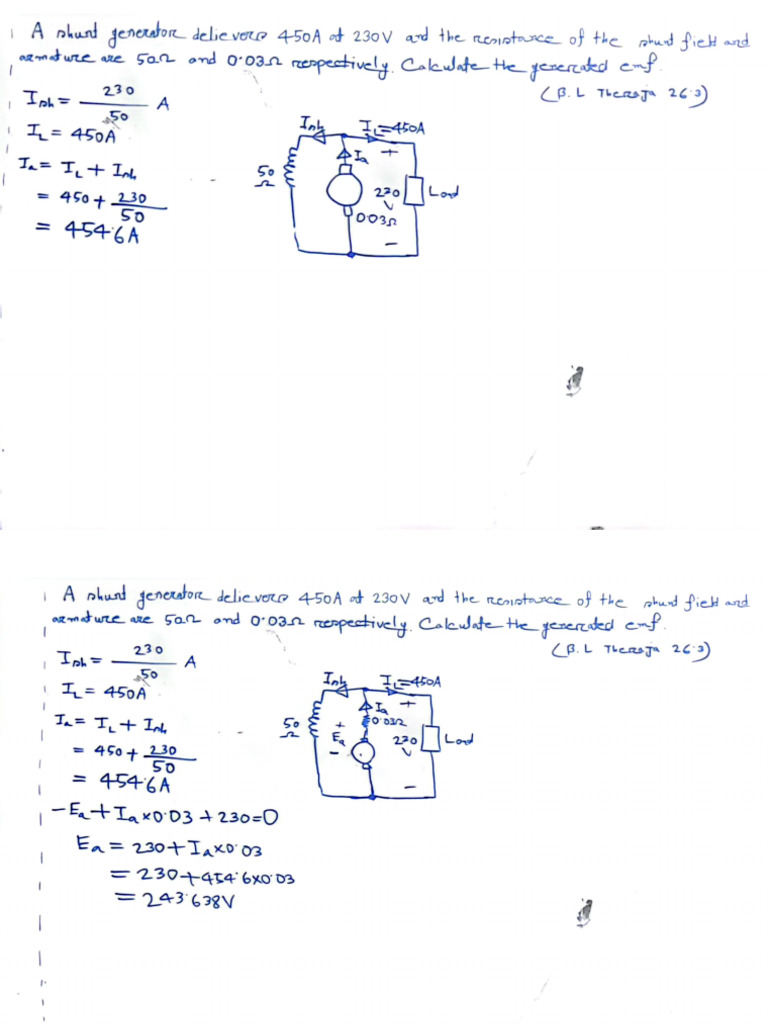 A shunt generator delievers 450A at 230V and the resistance of the shunt field and
armature are 50Ω and 0.03Ω respectively. Calculate the generated emf.
(B.L Theraja 26.3)
Ish = 230/50 A
IL = 450A
Ia = IL + Ish
= 450 + 230/50
= 454.6A
Ish
IL=450A
Ia
+
50
Ω
230
V
Load
0.03Ω
-
A shunt generator delievers 450A at 230V and the resistance of the shunt field and
armature are 50Ω and 0.03Ω respectively. Calculate the generated emf.
(B.L Theraja 26.3)
Ish = 230/50 A
IL = 450A
Ia = IL + Ish
= 450 + 230/50
= 454.6A
-Ea + Ia×0.03 + 230=0
Ea = 230 + Ia×0.03
= 230+454.6×0.03
= 243.638V
Ish
IL=450A
Ia
+
0.03Ω
50
Ω
+
Ea
-
230
V
Load
-